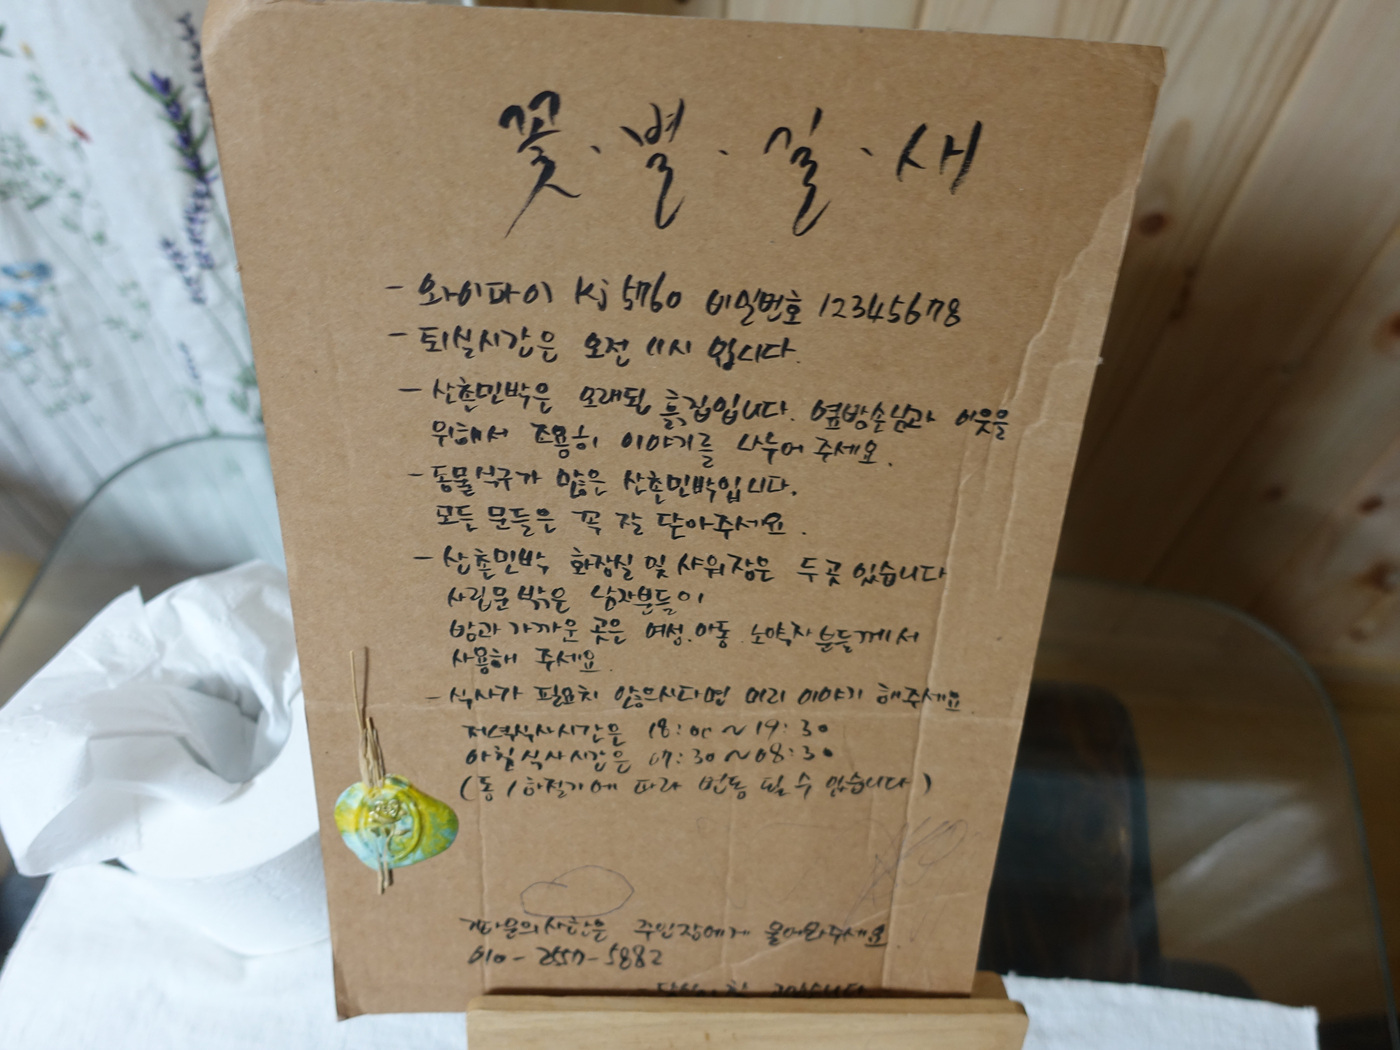 꽃·별·길·새
- 와이파이 Kj 5760 비밀번호 12345678
- 퇴실시간은 오전 11시 입니다.
- 산촌민박은 오래된 흙집입니다. 옆방손님과 이웃을
위해서 조용히 이야기를 나누어 주세요.
- 동물식구가 많은 산촌민박입니다.
모든 문들은 꼭 잘 닫아주세요.
- 산촌민박 화장실 및 샤워장은 두곳 있습니다
사립문 밖은 남자분들이
방과 가까운 곳은 여성.아동.노약자 분들께서
사용해 주세요.
- 식사가 필요치 않으시다면 미리 이야기 해주세요
저녁식사시간은 18:00~19:30
아침식사시간은 07:30~08:30
(동/하절기에 따라 변동 될 수 있습니다)
기타문의사항은 주인장에게 물어와주세요
010-2557-5882